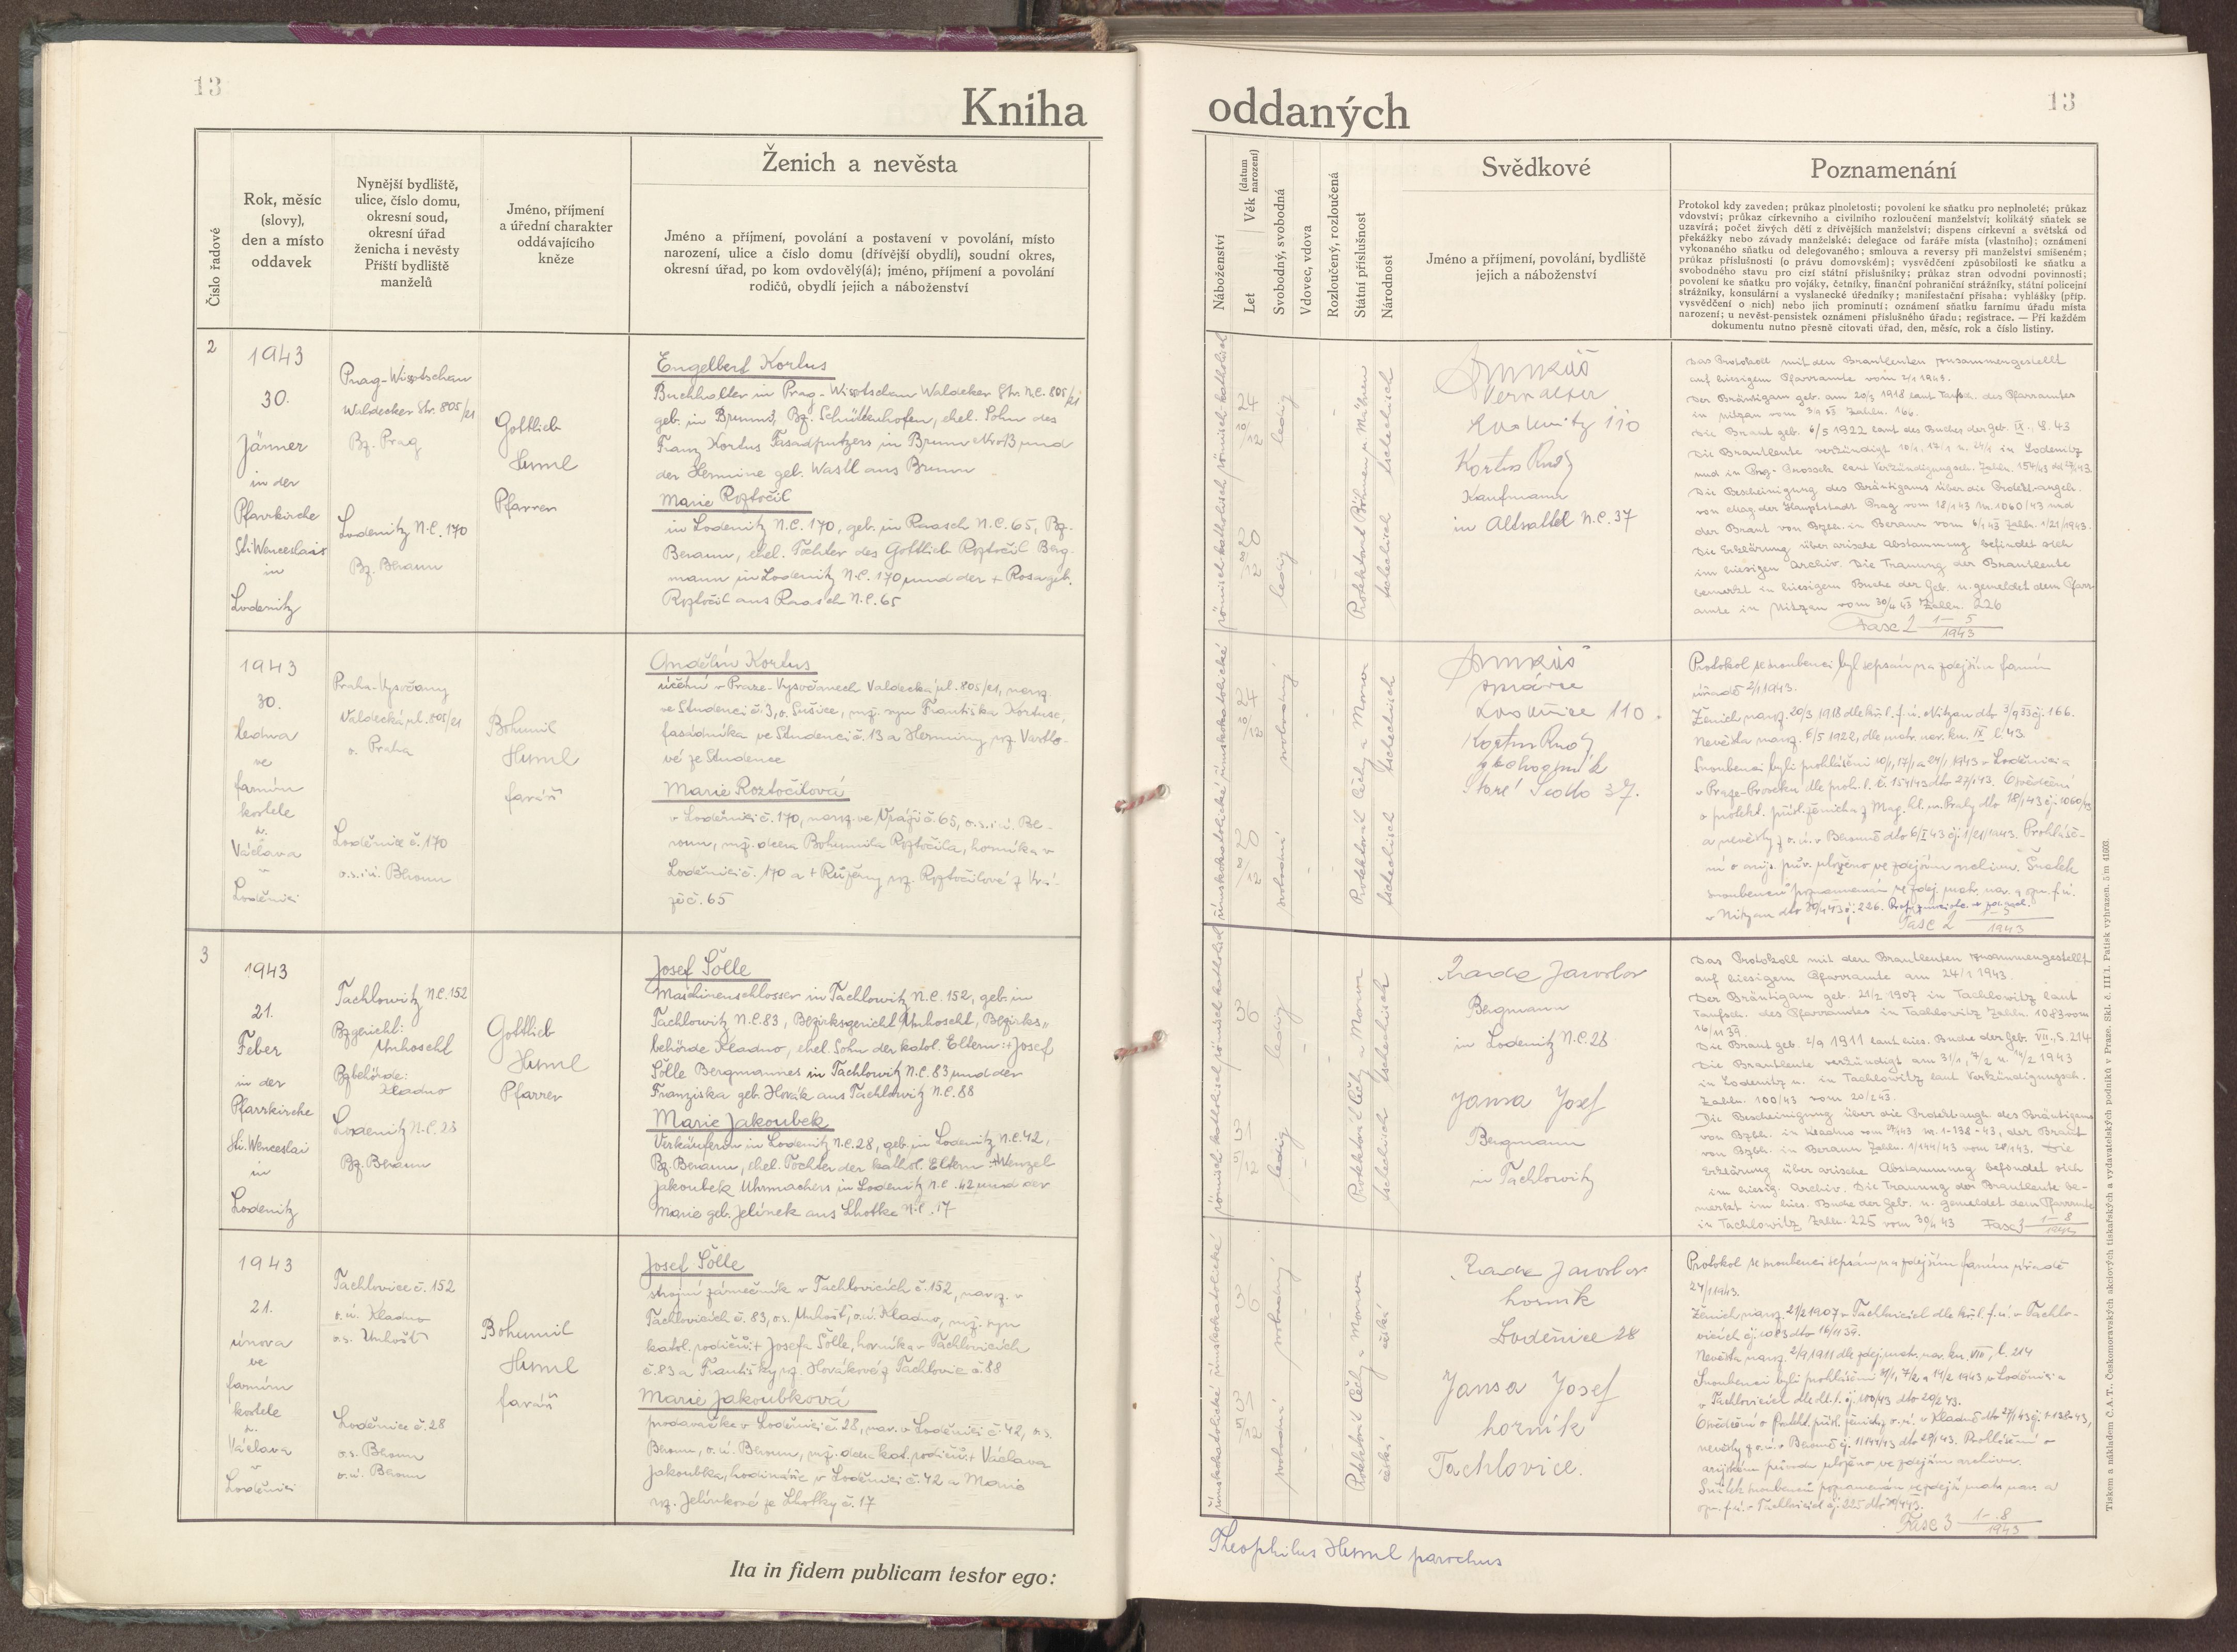 13
Kniha
Ženich a nevěsta
Číslo řadové
Rok, měsíc
(slovy),
den a místo
oddavek
Nynější bydliště,
ulice, číslo domu,
okresní soud,
okresní úřad
ženicha i nevěsty
Příští bydliště
manželů
Jméno, příjmení
a úřední charakter
oddávajícího
kněze
Jméno a příjmení, povolání a postavení v povolání, místo
narození, ulice a číslo domu (dřívější obydlí), soudní okres,
okresní úřad, po kom ovdovělý(á); jméno, příjmení a povolání
rodičů, obydlí jejich a náboženství
2
1943
30.
Jänner
in der
Pfarrkirche
Sti Wenceslais
in
Lodenitz
Prag-Wisotschan
Waldecker Str. 805/21
Bz. Prag
Lodenitz N.C. 170
Bz. Beraun
Gottlieb
Huml
Pfarrer
Engelbert Kortus
Buchhalter in Prag-Wisotschan Waldecker Str. N.C. 805/21
geb. in Brunn 3, Bz. Schüttenhofen, ehel. Sohn des
Franz Kortus Fasadputzers in Brunn No 13 und
der Hermine geb. Wastl aus Brunn
Marie Roztočil
in Lodenitz N.C. 170, geb. in Raasch N.C. 65, Bz.
Beraun, ehel. Tochter des Gottlieb Roztočil Berg-
mann in Lodenitz N.C. 170 und der + Rosa geb.
Roztočil aus Raasch N.C. 65
1943
30.
ledna
ve
farním
kostele
sv.
Václava
v
Loděnici
Praha-Vysočany
Valdecká ul. 805/21
o. Praha
Loděnice č. 170
o.s. i ú. Beroun
Bohumil
Huml
farář
Andělín Kortus
účetní v Praze-Vysočanech Valdecká ul. 805/21, naroz.
ve Studenci č. 3, o. Sušice, mž. syn Františka Kortuse,
fasádníka ve Studenci č. 13 a Herminy roz. Vastlo-
vé ze Studence
Marie Roztočilová
v Loděnici č. 170, naroz. ve Vráži č. 65, o.s. i ú. Be-
roun, mž. dcera Bohumila Roztočila, horníka v
Loděnici č. 170 a + Růženy roz. Roztočilové z Vrá-
že č. 65
3
1943
21.
Feber
in der
Pfarrkirche
Sti. Wenceslai
in
Lodenitz
Tachlowitz N.C. 152
Bzgericht:
Unhoscht
Bzbehörde:
Kladno
Lodenitz N.C. 28
Bz. Beraun
Gottlieb
Huml
Pfarrer
Josef Šölle
Maschinenschlosser in Tachlowitz N.C. 152, geb. in
Tachlowitz N.C. 83, Bezirksgericht Unhoscht, Bezirks„
behörde Kladno, ehel. Sohn der katol. Eltern: + Josef
Šölle Bergmannes in Tachlowitz N.C. 83, und der
Franziska geb. Horák aus Tachlowitz N.C. 88
Marie Jakoubek
Verkäuferin in Lodenitz N.C. 28, geb. in Lodenitz N.C. 42,
Bz. Beraun, ehel. Tochter der kathol. Eltern: + Wenzel
Jakoubek Uhrmachers in Lodenitz N.C. 42 und der
Marie geb. Jelínek aus Lhotka N.C. 17
1943
21.
února
ve
farním
kostele
sv.
Václava
v
Loděnici
Tachlovice č. 152
o.ú. Kladno
o.s. Unhošť
Loděnice č. 28
o.s. Beroun
o.ú. Beroun
Bohumil
Huml
farář
Josef Šölle
strojní zámečník v Tachlovicích č. 152, naroz. v
Tachlovicích č. 83, o.s. Unhošť, o.ú. Kladno, mž. syn
katol. rodičů: + Josefa Šölle, horníka v Tachlovicích
č. 83 a Františky roz. Horákové z Tachlovic č. 88
Marie Jakoubková
prodavačka v Loděnici č. 28, nar. v Loděnici č. 42, o.s.
Beroun, o.ú. Beroun, mž. dcera kat. rodičů: + Václava
Jakoubka, hodináře v Loděnici č. 42 a Marie
roz. Jelínkové ze Lhotky č. 17
Ita in fidem publicam testor ego:
13
oddaných
Náboženství
Let
Věk (datum narození)
Svobodný, svobodná
Vdovec, vdova
Rozloučený, rozloučená
Státní příslušnost
Národnost
Svědkové
Jméno a příjmení, povolání, bydliště
jejich a náboženství
Poznamenání
Protokol kdy zaveden; průkaz plnoletosti; povolení ke sňatku pro neplnoleté; průkaz
vdovství; průkaz církevního a civilního rozloučení manželství; kolikátý sňatek se
uzavírá; počet živých dětí z dřívějších manželství; dispens církevní a světská od
překážky nebo závady manželské; delegace od faráře místa (vlastního); oznámení
vykonaného sňatku od delegovaného; smlouva a reversy při manželství smíšeném;
průkaz příslušnosti (o právu domovském); vysvědčení způsobilosti ke sňatku a
svobodného stavu pro cizí státní příslušníky; průkaz stran odvodní povinnosti;
povolení ke sňatku pro vojáky, četníky, finanční pohraniční strážníky, státní policejní
strážníky, konsulární a vyslanecké úředníky; manifestační přísaha; vyhlášky (příp.
vysvědčení o nich) nebo jich prominutí; oznámení sňatku farnímu úřadu místa
narození; u nevěst-pensistek oznámení příslušného úřadu; registrace. — Při každém
dokumentu nutno přesně citovati úřad, den, měsíc, rok a číslo listiny.
römisch-katholisch römisch-katholisch
24 10/12
20 8/12
ledig
ledig
Protektorat Böhmen u. Mähren
tschechisch tschechisch
Verwalter
110
Kortus
Kaufmann
in Altsattel N.C. 37
Das Protokoll mit den Brautleuten zusammengestellt
auf hiesigem Pfarramte vom 2/1 1943.
Der Bräutigam geb. am 20/3 1918 laut Taufsch. des Pfarramtes
in Nitzau vom 3/9 35 Zahln. 166.
Die Braut geb. 6/5 1922 laut des Buches der Geb. IX., S. 43
Die Brautleute verkündigt 10/1, 17/1 u. 24/1 in Lodenitz
und in Prag-Prossek laut Verkündigungsch. Zahln. 154/43
Die Bescheinigung des Bräutigams über die Protekt.angeh.
von Mag. der Hauptstadt Prag vom 18/1 43 N. 1060/43 und
der Braut von Bzbh. in Beraun vom 6/1 43 Zahln. 1/21/1943.
Die Erklärung über arische Abstammung befindet sich
im hiesigen Archiv. Die Trauung der Brautleute
bemerkt in hiesigem Buche der Geb. u. gemeldet dem Pfarr-
amte in Nitzau vom 30/4 43 Zahln. 226
Fasc 2 1–5/1943
římskokatolické římskokatolické
24 10/12
20 8/12
svobodný
svobodná
Protektorát Čechy a Morava
tschechisch tschechisch
správce
Loděnice 110.
Kortus
obchodník
Staré Sedlo 37.
Protokol se snoubenci byl sepsán na zdejším farním
úřadě 2/1 1943.
Ženich naroz. 20/3 1918 dle kř. l. f. ú. Nitzau dto 3/9 35 čj. 166.
Nevěsta naroz. 6/5 1922, dle matr. nar. kn. IX l. 43.
Snoubenci byli prohlášeni 10/1, 17/1 a 24/1 1943 v Loděnici a
v Praze-Proseku dle proh. l. č. 154/43 dto 27/1 43. Osvědčení
o protekt. přísl. ženicha z Mag. hl. m. Prahy dto 18/1 43 čj. 1060/43
a nevěsty z o.ú. v Berouně dto 6/I 43 čj. 1/21/1943. Prohláše-
ní o arij. pův. uloženo ve zdejším archivu. Sňatek
snoubenců poznamenán ve zdej. matr. nar. a ozn. f. ú.
v Nitzau dto 30/4 43 čj. 226.
Fasc 2 1–5/1943
römisch-katholisch römisch-katholisch
36
31 5/12
ledig
ledig
Protektorát Čechy a Morava
tschechisch tschechisch
Jaroslav
Bergmann
in Lodenitz N.C. 28
Jansa Josef
Bergmann
in Tachlowitz
Das Protokoll mit den Brautleuten zusammengestellt
auf hiesigem Pfarramte am 24/1 1943.
Der Bräutigam geb. 21/2 1907 in Tachlowitz laut
Taufsch. des Pfarramtes in Tachlowitz Zahln. 1083 vom
16/11 39.
Die Braut geb. 2/9 1911 laut hies. Buche der Geb. VII., S. 214
Die Brautleute verkündigt am 31/1, 7/2 u. 14/2 1943
in Lodenitz u. in Tachlowitz laut Verkündigungsch.
Zahln. 100/43 vom 20/2 43.
Die Bescheinigung über die Protektangh. des Bräutigams
von Bzbh. in Kladno vom 27/1 43 Nr. 1-138-43, der Braut
von Bzbh. in Beraun Zahln. 1/144/43 vom 29/1 43. Die
Erklärung über arische Abstammung befindet sich
im hiesig. Archiv. Die Trauung der Brautleute be-
merkt im hies. Buche der Geb. u. gemeldet dem Pfarramte
in Tachlowitz Zahln. 225 vom 30/4 43 Fasc 3 1–8/1943
římskokatolické římskokatolické
36
31 5/12
svobodný
svobodná
Protektorát Čechy a Morava
česká česká
Jaroslav
horník
Loděnice 28
Jansa Josef
horník
Tachlovice.
Protokol se snoubenci sepsán na zdejším farním úřadě
24/1 1943.
Ženich naroz. 21/2 1907 v Tachlovicích dle kř. l. f. ú. v Tachlo-
vicích čj. 1083 dto 16/11 39.
Nevěsta naroz. 2/9 1911 dle zdej. matr. nar. kn. VII, l. 214
Snoubenci byli prohlášeni 31/1, 7/2 a 14/2 1943 v Loděnici a
v Tachlovicích dle ohl. l. čj. 100/43 dto 20/2 43.
Osvědčení o Protekt. přísl. ženicha z o.ú. v Kladně dto 27/1 43 čj. 1-138-43,
nevěsty z o.ú. v Berouně čj. 1/144/43 dto 29/1 43. Prohlášení o
arijském původu uloženo ve zdejším archivu.
Sňatek snoubenců poznamenán ve zdejší matr. nar. a
ozn. f. ú. v Tachlovicích čj. 225 dto 30/4 43.
Fasc 3 1–8/1943
Theophilus Huml parochus
Tiskem a nákladem Č.A.T., Českomoravských akciových tiskařských a vydavatelských podniků v Praze. Skl. č. III 1. Patisk vyhrazen. 5 m 41603.